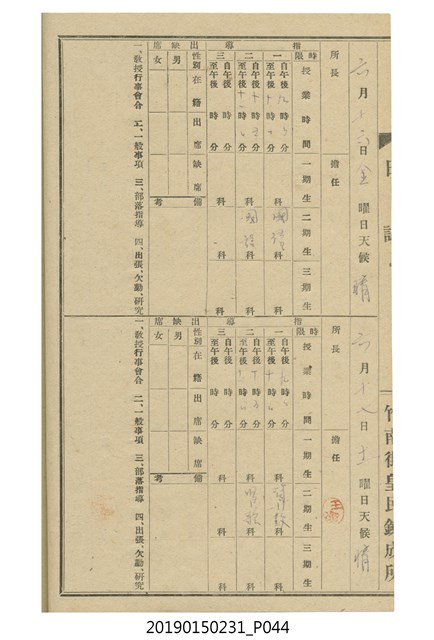 六月十六日金曜日天候晴
所長
擔任
指導
時限
授業時間
一期生
二期生
三期生
一
自午後九時 分
至午後十時 分
科
國語
科
科
二
自午後十時 分
至午後十一時 分
科
國語
科
科
三
自午後 時 分
至午後 時 分
科
科
科
出缺席
性別
在籍
出席
缺席
備考
男
女
一、教授行事會合 二、一般事項 三、部落指導 四、出張、欠勤、研究
竹南街皇民鍊成所
日誌
六月十八日土曜日天候晴
所長
擔任
指導
時限
授業時間
一期生
二期生
三期生
一
自午後九時 分
至午後十時 分
科
科
科
二
自午後十時 分
至午後十一時 分
科
唱歌
科
科
三
自午後 時 分
至午後 時 分
科
科
科
出缺席
性別
在籍
出席
缺席
備考
男
女
一、教授行事會合 二、一般事項 三、部落指導 四、出張、欠勤、研究
20190150231_P044